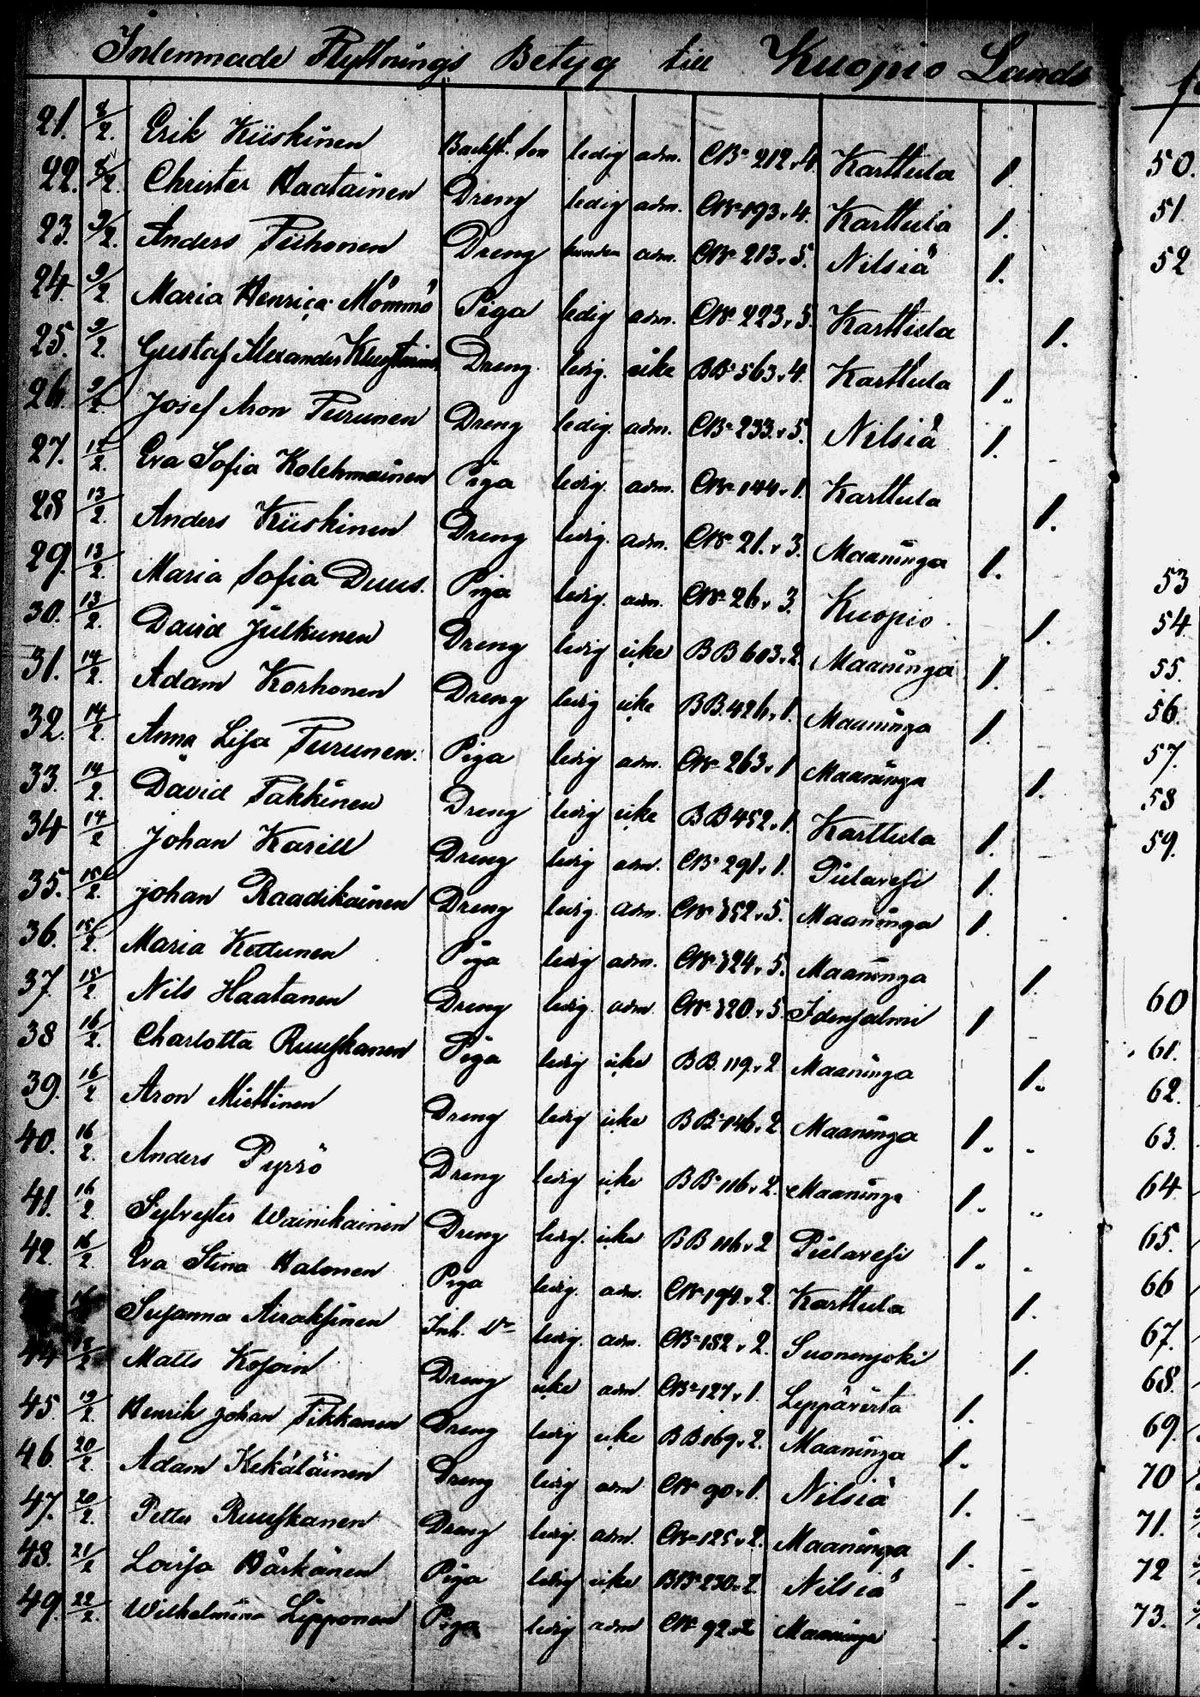 Inlemnade Flyttnings Betyg till Kuopio Lands
21. 8/2. Erik Kiiskinen Backst. son ledig adm. CB 212 v 4. Karttula 1.
22. 8/2. Christer Haatainen Dreng ledig adm. CB 193 v 4. Karttula 1.
23. 9/2. Anders Tiihonen Dreng adm. CB 213 v 5. Nilsiä 1.
24. 9/2 Maria Henrica Mömmö Piga ledig adm. CB 223 v 5. Karttula 1.
25. 9/2. Gustaf Alexander Dreng ledig. icke BB 563 v 4. Karttula 1.
26. 9/2 Josef Aron Turunen Dreng ledig. adm. CB 233 v 5. Nilsiä 1.
27. 12/2. Eva Sofia Kolehmainen Piga ledig. adm. CB 144 v 1. Karttula 1.
28 13/2. Anders Kiiskinen Dreng ledig. adm. CB 21. v 3. Maaninga 1.
29. 13/2. Maria Sofia Duus. Piga ledig. adm. CB 26 v 3. Kuopio. 1.
30. 13/2. David Julkunen Dreng ledig icke BB 603 v 2. Maaninga 1.
31. 14/2. Adam Korhonen Dreng ledig icke BB. 426 v 1. Maaninga 1.
32. 14/2. Anna Lisa Turunen. Piga ledig adm. CB 263 v 1 Maaninga 1.
33. 14/2. David Takkinen Dreng ledig icke BB 452 v 1. Karttula 1.
34 14/2 Johan Karill Dreng ledig adm. CB 291 v 1. Pielavesi 1.
35. 15/2. Johan Raadikainen Dreng ledig. adm. CB 352 v 5. Maaninga 1.
36. 15/2 Maria Kettunen Piga ledig adm. CB 324 v 5. Maaninga 1.
37. 15/2 Nils Haatanen Dreng ledig. adm CB 320 v 5 Idensalmi 1
38 16/2. Charlotta Ruuskanen Piga ledig icke BB. 119 v 2 Maaninga 1.
39. 16/2 Aron Miettinen Dreng ledig icke BB 146 v 2 Maaninga 1.
40. 16/2. Anders Pyrrö Dreng ledig icke BB 116 v 2. Maaninga 1.
41. 16/2 Sylvester Wainikainen Dreng ledig. icke BB 116 v 2 Pielavesi 1.
42. 16/2 Eva Stina Halonen Piga ledig. adm. CB 194 v 2. Karttula 1.
Susanna Airaksinen Inh. Dr ledig. adm. CB 152 v 2. Suonenjoki 1.
44 18/2 Matts Kosoin Dreng icke adm CB 127 v 1. Leppävirta 1.
45 19/2. Henrik Johan Pikkanen Dreng ledig icke BB 169 v 2. Maaninga 1.
46. 20/2. Adam Kekäläinen Dreng ledig adm CB 90 v 1. Nilsiä 1.
47. 20/2. Petter Ruuskanen Dreng ledig. adm. CB 125 v 2. Maaninga 1.
48. 21/2 Lovisa Härkönen Piga ledig icke BB 230 v 2. Nilsiä 1.
49. 22/2. Wilhelmina Lipponen Piga ledig adm CB 92 v 2 Maaninga 1.
50.
51.
52
53
54.
55.
56.
57.
58
59.
60
61.
62.
63.
64
65.
66
67.
68.
69.
70
71.
72
73.